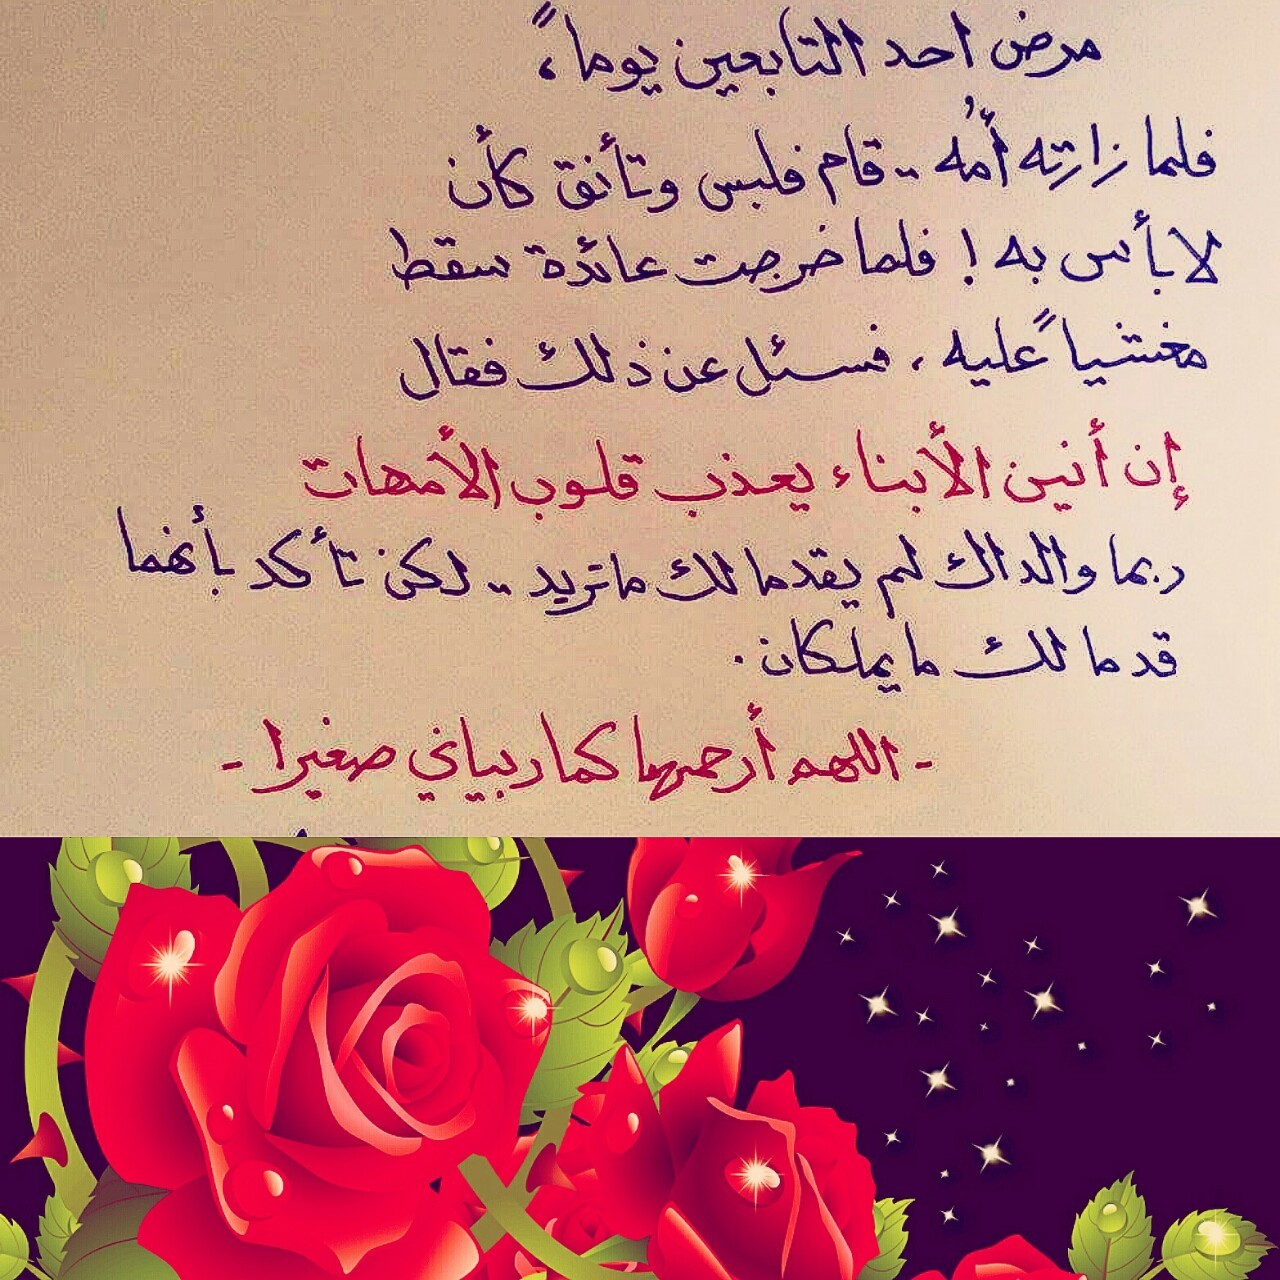 مرض احد التابعين يوماً،
فلما زارته أمُّه .. قام فلبس وتأنق كأن
لا بأس به ! فلما خرجت عائدة سقط
مغشياً عليه ، فسئل عن ذلك فقال
إن أنين الأبناء يعذب قلوب الأمهات
ربما والداك لم يقدما لك ماتريد .. لكن تأكد بأنهما
قدما لك ما يملكان .
- اللهم أرحمهما كما ربياني صغيرا -